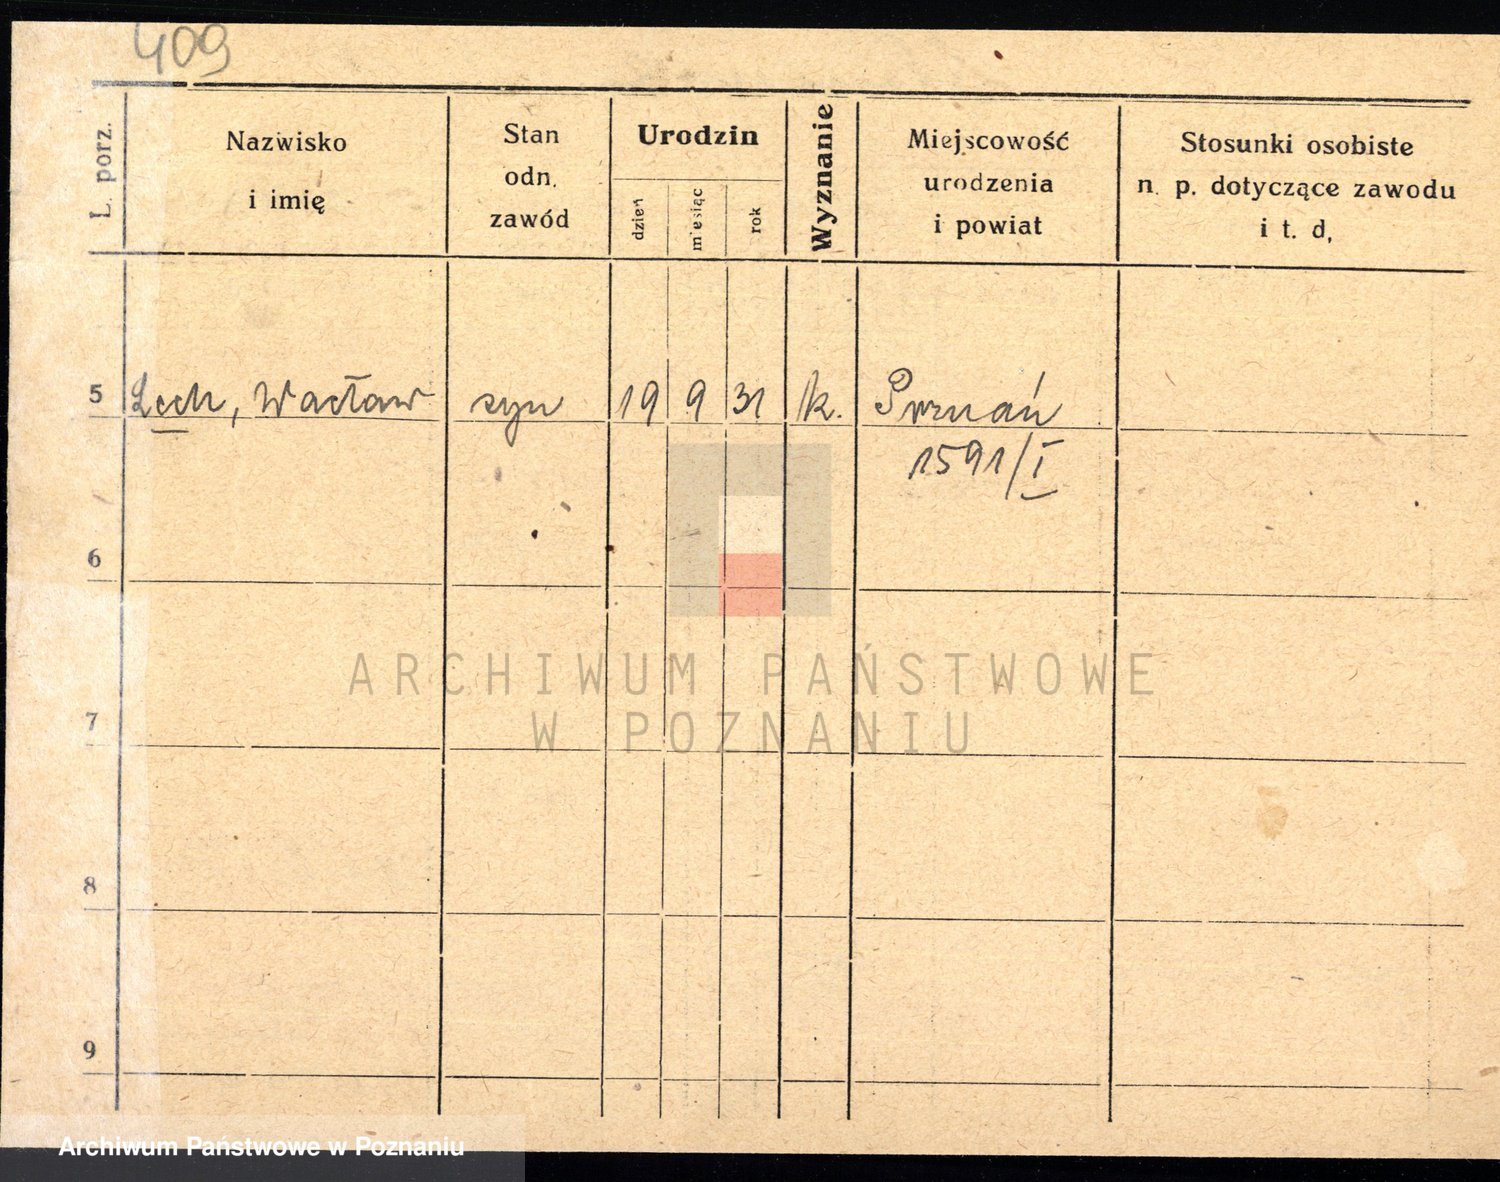 409
L. porz.
Nazwisko
i imię
Stan
odn.
zawód
Urodzin
dzień
miesiąc
rok
Wyznanie
Miejscowość
urodzenia
i powiat
Stosunki osobiste
n. p. dotyczące zawodu
i t. d,
5 Lech, Wacław syn 19 9 31 k. Poznań
1591/I
6
7
8
9
ARCHIWUM PAŃSTWOWE
W POZNANIU
Archiwum Państwowe w Poznaniu